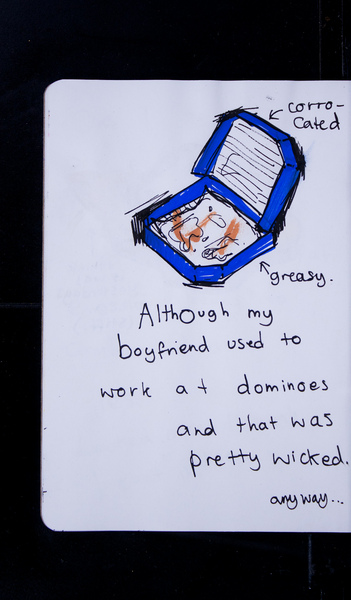 corro-
cated
greasy.
Although my
boyfriend used to
work at dominoes
and that was
pretty wicked.
anyway...